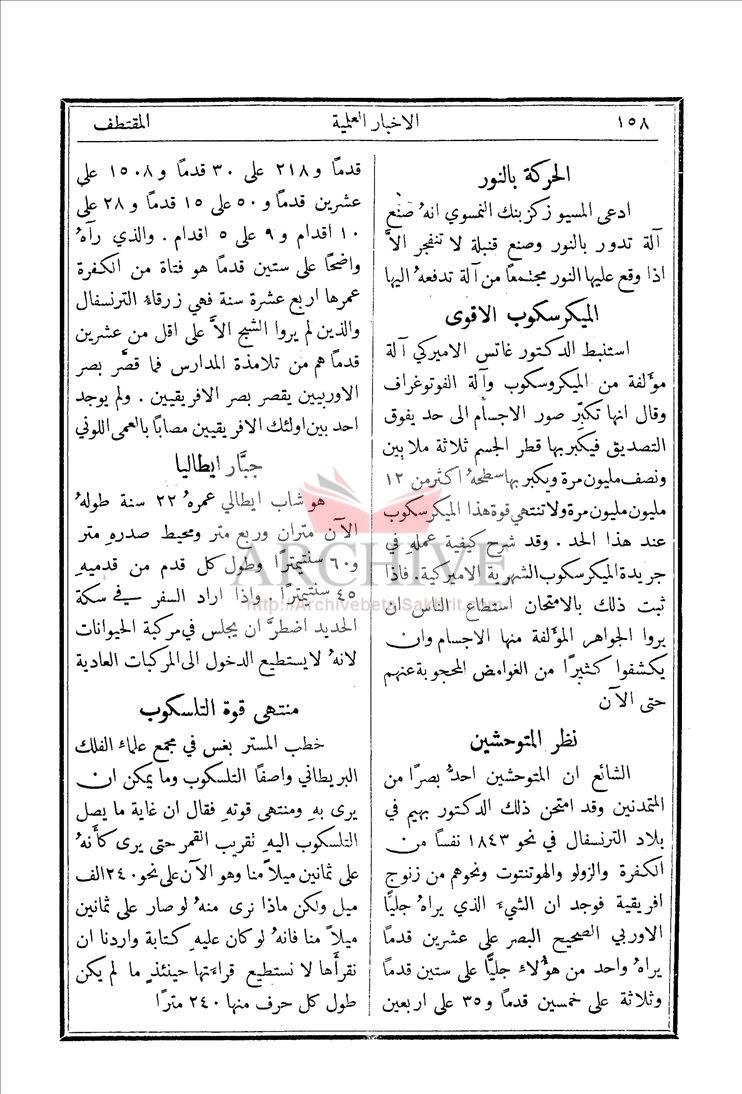 ١٥٨ الاخبار العلمية المقتطف
الحركة بالنور
ادعى المسيو زكز بنك النمسوي انهُ صنع
آلة تدور بالنور وصنع قنبلة لا تنفجر الاَّ
اذا وقع عليها النور مجتمعًا من آلة تدفعهُ اليها
الميكرسكوب الاقوى
استنبط الدكتور غاتس الاميركي آلة
مؤلفة من الميكروسكوب وآلة الفوتوغراف
وقال انها تكبّر صور الاجسام الى حد يفوق
التصديق فيكبر بها قطر الجسم ثلاثة ملايين
ونصف مليون مرة ويكبر بها سطحهُ اكثر من ١٢
مليون مليون مرة ولا تنتهي قوة هذا الميكرسكوب
عند هذا الحد . وقد شرح كيفية عمله في
جريدة الميكرسكوب الشهرية الاميركية. فاذا
ثبت ذلك بالامتحان استطاع الناس ان
يروا الجواهر المؤلفة منها الاجسام وان
يكشفوا كثيرًا من الغوامض المحجوبة عنهم
حتى الآن
نظر المتوحشين
الشائع ان المتوحشين احدُّ بصرًا من
المتمدنين وقد امتحن ذلك الدكتور بهيم في
بلاد الترنسفال في نحو ١٨٤٣ نفسًا من
الكفرة والزولو والهوتنتوت ونحوهم من زنوج
افريقية فوجد ان الشيء الذي يراهُ جليًّا
الاوربي الصحيح البصر على عشرين قدمًا
يراهُ واحد من هؤلاء جليًّا على ستين قدمًا
وثلاثة على خمسين قدمًا و ٣٥ على اربعين
قدمًا و ٢١٨ على ٣٠ قدمًا و ١٥٠٨ على
عشرين قدمًا و ٥٠ على ١٥ قدمًا و ٢٨ على
١٠ اقدام و ٩ على ٥ اقدام . والذي رآهُ
واضحًا على ستين قدمًا هو فتاة من الكفرة
عمرها اربع عشرة سنة فهي زرقاءُ الترنسفال
والذين لم يروا الشبح الاَّ على اقل من عشرين
قدمًا هم من تلامذة المدارس فما قصَّر بصر
الاوربيين يقصر بصر الافريقيين . ولم يوجد
احد بين اولئك الافريقيين مصابًا بالعمى اللوني
جبَّار ايطاليا
هو شاب ايطالي عمرهُ ٢٢ سنة طولهُ
الآن متران وربع متر ومحيط صدرهِ متر
و٦٠ سنتيمترًا وطول كل قدم من قدميهِ
٤٥ سنتيمترًا . واذا اراد السفر في سكة
الحديد اضطرَّ ان يجلس في مركبة الحيوانات
لانهُ لا يستطيع الدخول الى المركبات العادية
منتهى قوة التلسكوب
خطب المستر بغس في مجمع علماء الفلك
البريطاني واصفًا التلسكوب وما يمكن ان
يرى بهِ ومنتهى قوتهِ فقال ان غاية ما يصل
التلسكوب اليهِ تقريب القمر حتى يرى كأنهُ
على ثمانين ميلاً منا وهو الآن على نحو ٢٤٠ الف
ميل ولكن ماذا نرى منهُ لو صار على ثمانين
ميلاً منا فانهُ لو كان عليهِ كتابة واردنا ان
نقرأها لا نستطيع قراءتها حينئذٍ ما لم يكن
طول كل حرف منها ٢٤٠ مترًا
ARCHIVE
http://Archivebeta.Sakhrit.com